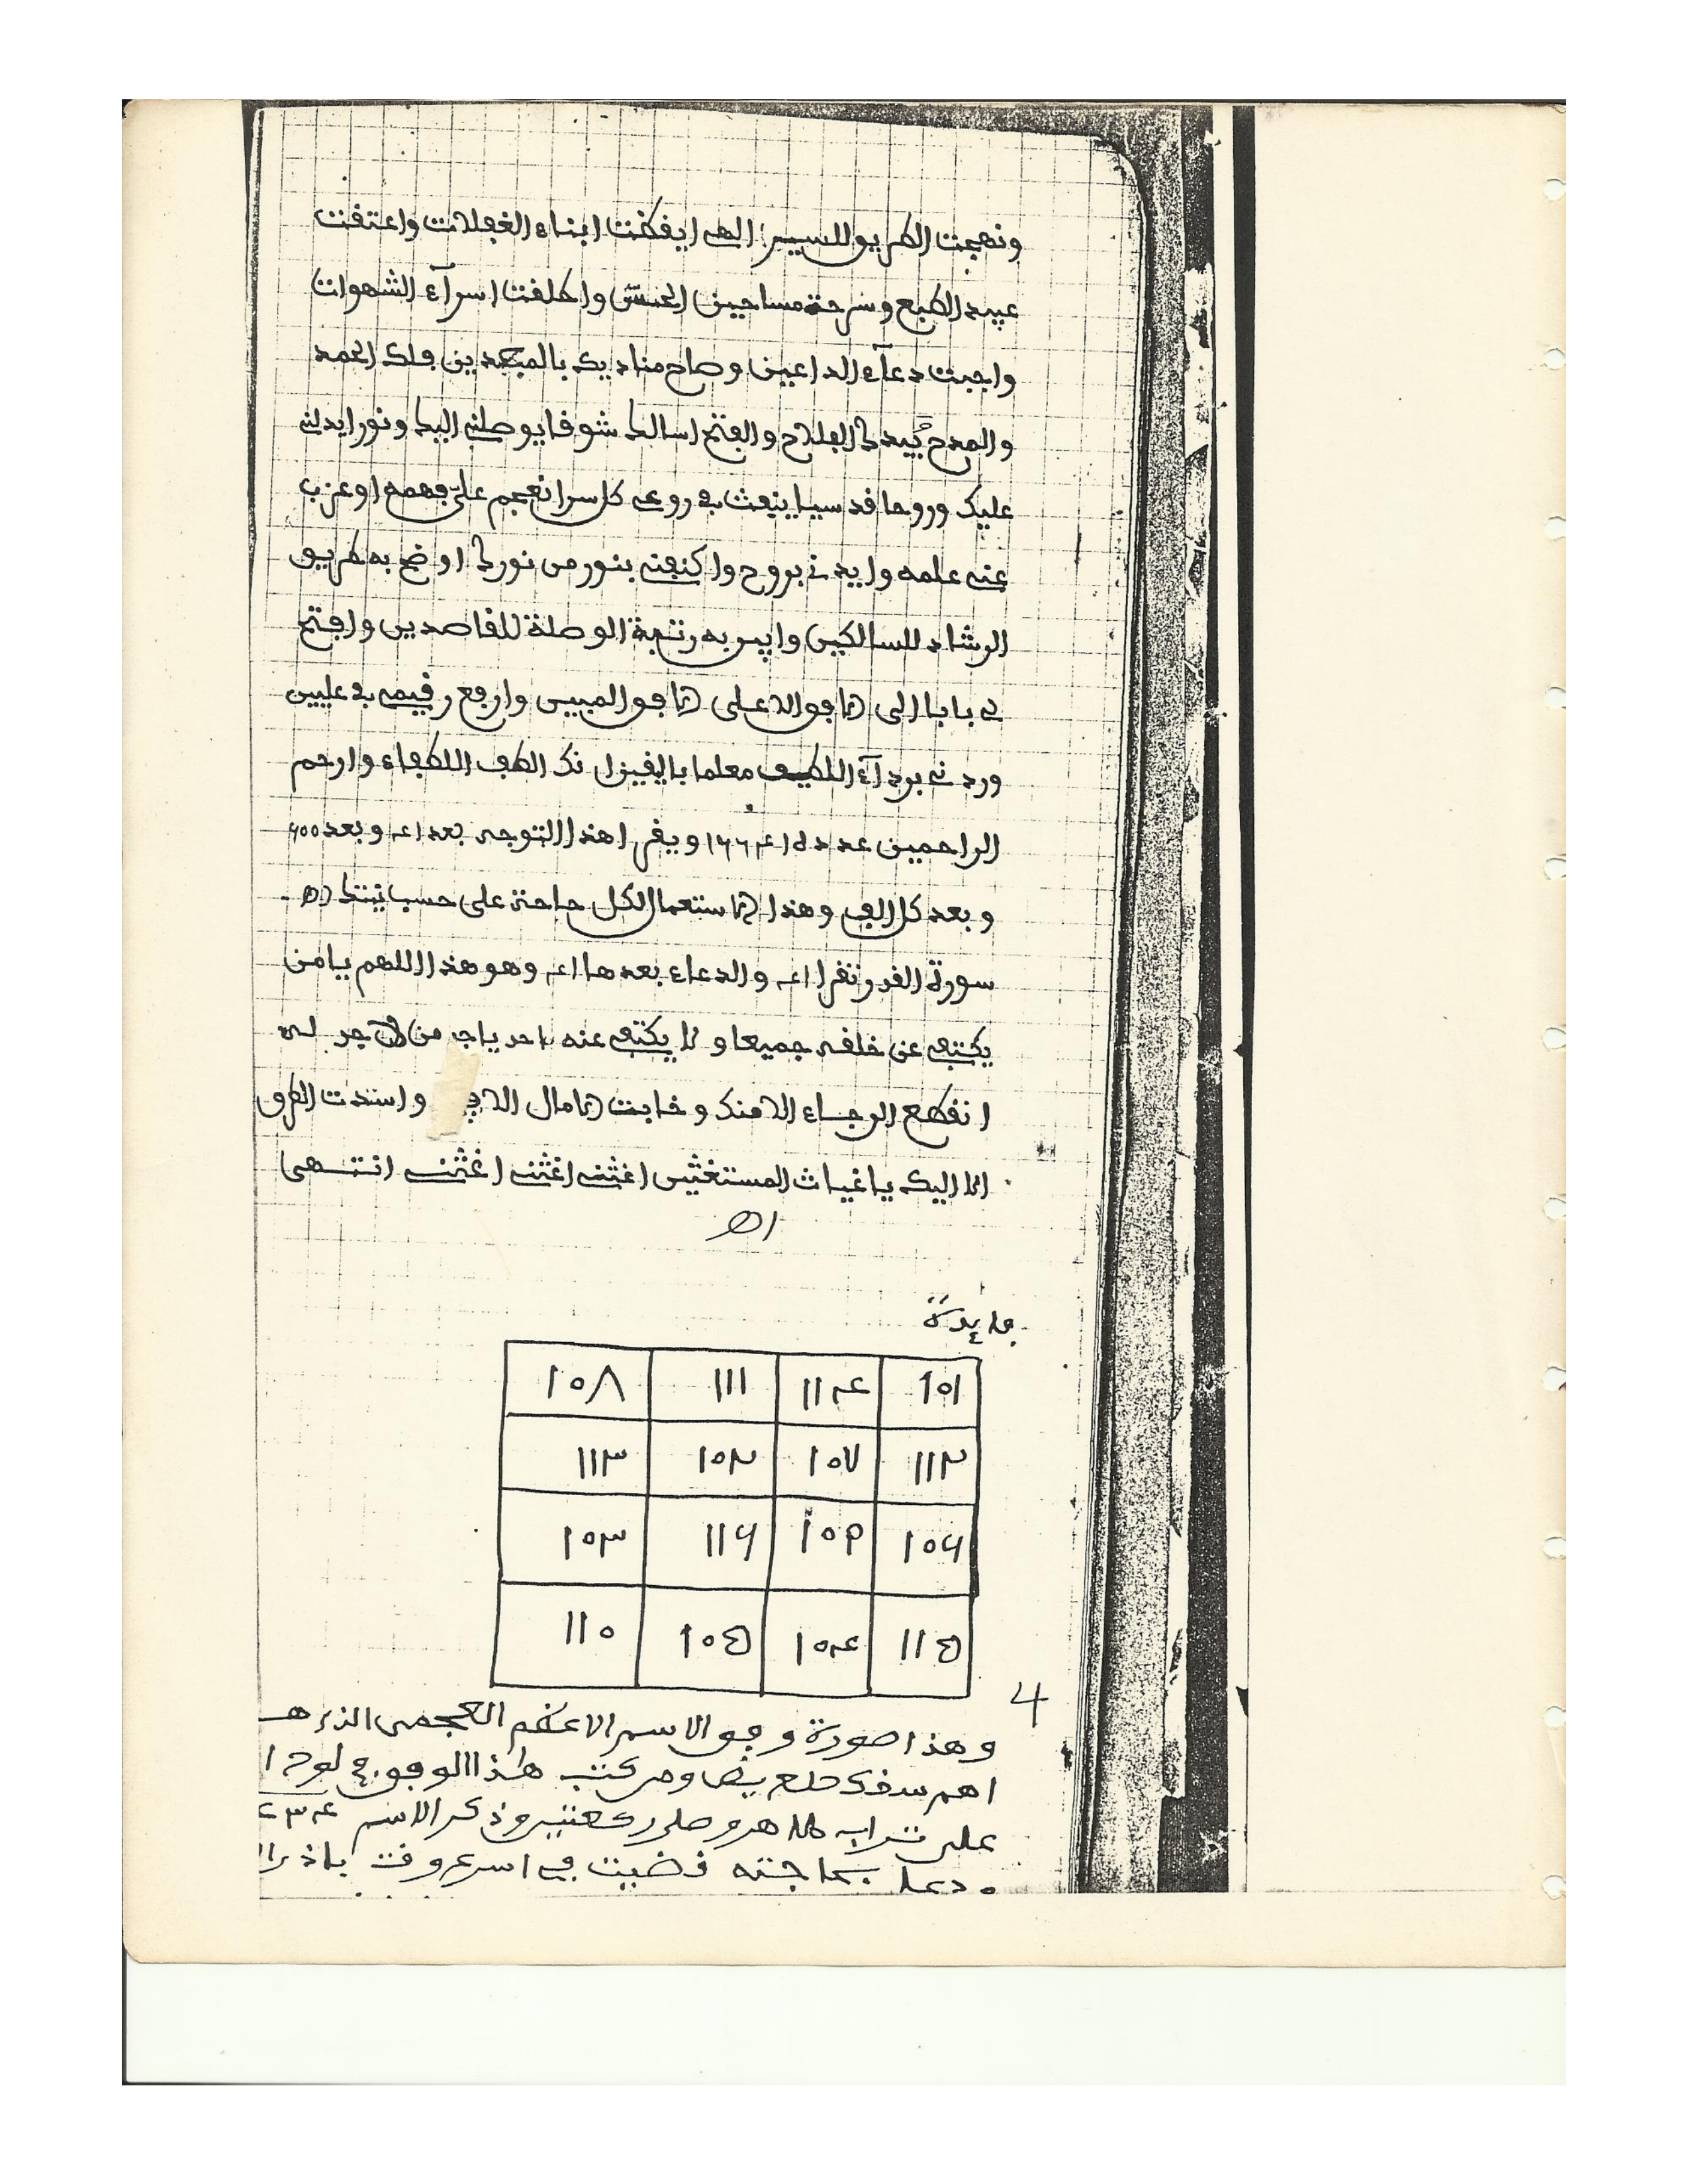 ونهجت الطريق للسير الهي ايقظت ابناء الغفلات واعتقت
عبيد الطبع وسرحة مساجين الحسّ واطلقت اسرآء الشهوات
واجبت دعآء الداعين وصاح مناديك بالمبعدين فلك الحمد
والمدح بيدك الفلاح والفتح اسالك شوقا يوصلني اليك ونورا يدلني
عليك وروحا قدسيا ينفث في روعي كل سر انعجم عليّ فهمه او عزب
عني علمه وايدني بروح واكنفني بنور من نورك اوضح به طريق
الرشاد للسالكين وابين به رتبة الوصلة للقاصدين وافتح
لي بابا الى الافق الاعلى الافق المبين وارفع رقيمي في عليين
وردني بردآء اللطف معلما باليقين انك الطف اللطفاء وارحم
الراحمين عدده ١٦٦٤١ ويقرا هذا التوجه بعد ٤١ وبعد ٦٠٠
وبعد كل الف وهذا الاستعمال لكل حاجة على حسب نيتك اه
سورة القدر تقرا ٤١ والدعاء بعدها ٤١ وهو هذا اللهم يا من
يكتفي عن خلقه جميعا ولا يكتفي عنه احد يا من لا له
انقطع الرجاء الا منك وخابت الامال الا فيك واسندت الطرق
الا اليك يا غياث المستغثين اغثني اغثني اغثني انتهى
اه
فايدة
١٠١ ١١٤ ١١١ ١٠٨
١١٢ ١٠٧ ١٠٢ ١١٣
١٠٦ ١٠٩ ١١٦ ١٠٣
١١٥ ١٠٤ ١٠٥ ١١٠
4
وهذا صورة وفق الاسم الاعظم العجمي الذي هـ
اهم سقك حلع يص ومن كتب هذا الوفق في لوح ا
على تراب طاهر وصلى ركعتين وذكر الاسم ٤٣٤
ودعا بحاجته قضيت في اسرع وقت باذن ال